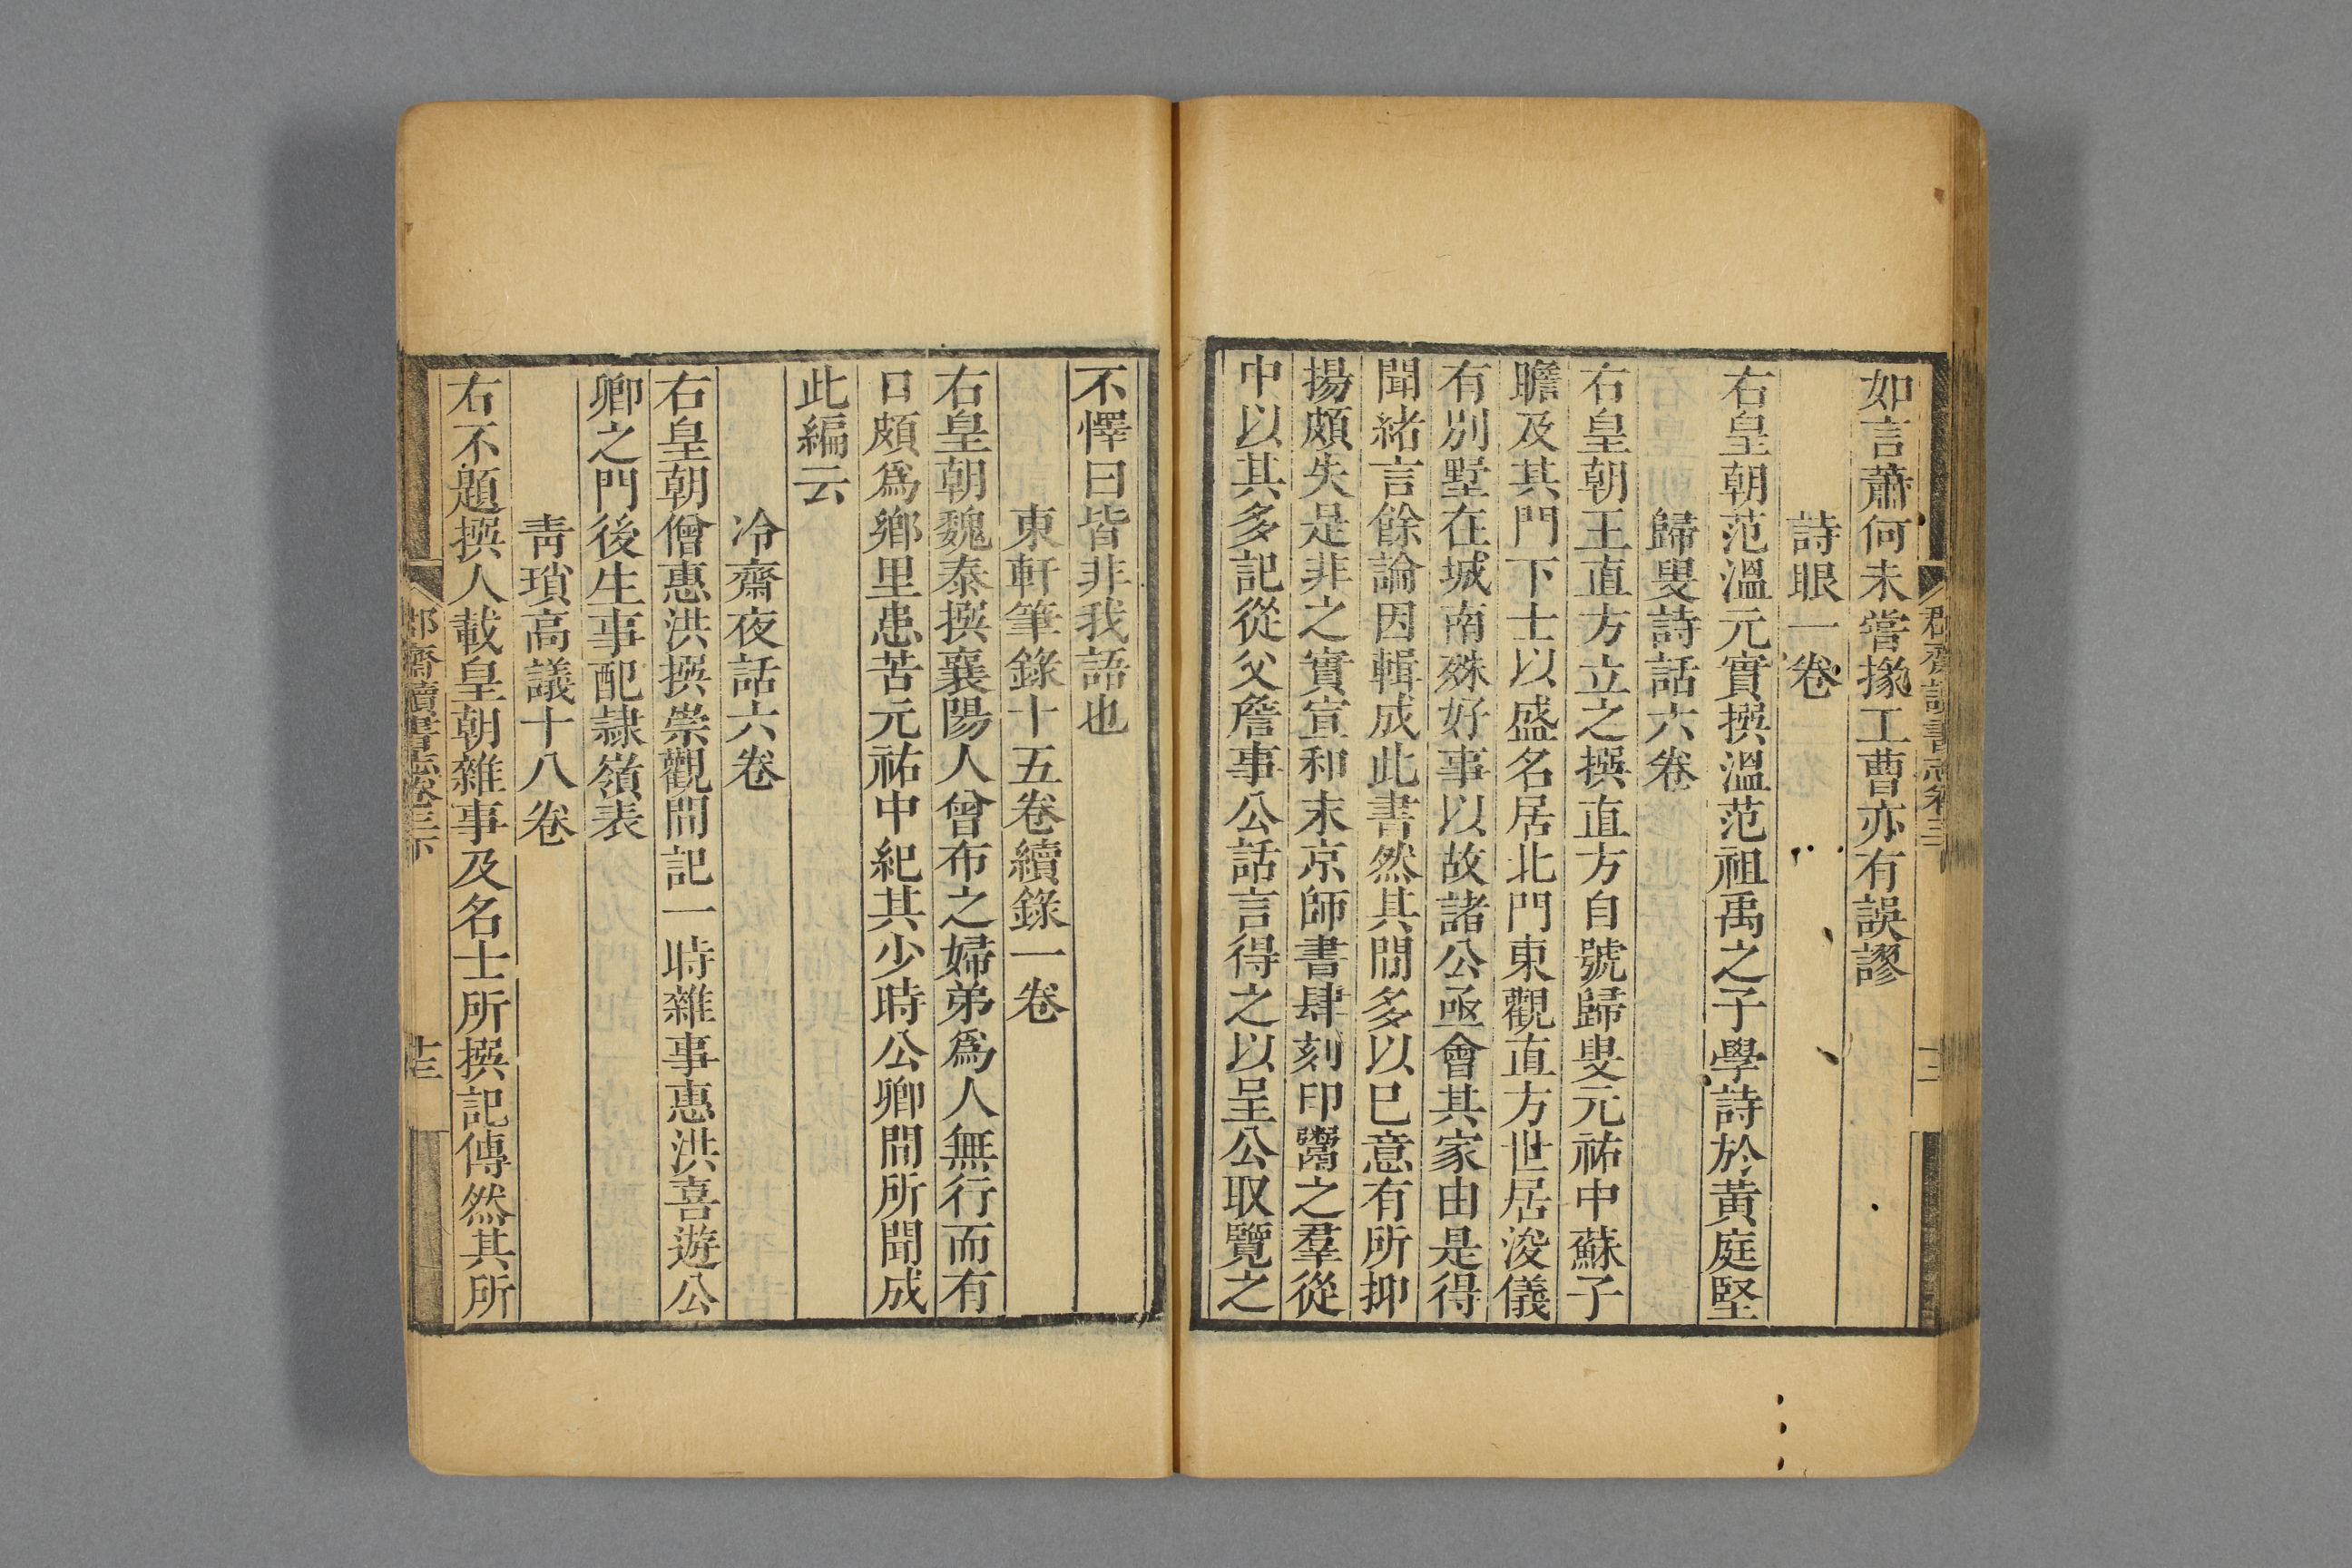 如言蕭何未嘗掾工曹亦有誤謬
詩眼一卷
右皇朝范溫元實撰溫范祖禹之子學詩於黃庭堅
歸叟詩話六卷
右皇朝王直方立之撰直方自號歸叟元祐中蘇子
瞻及其門下士以盛名居北門東觀直方世居浚儀
有別墅在城南殊好事以故諸公亟會其家由是得
聞緒言餘論因輯成此書然其間多以已意有所抑
揚頗失是非之實宣和末京師書肆刻印鬻之羣從
中以其多記從父詹事公話言得之以呈公取覽之
不懌曰皆非我語也
東軒筆錄十五卷續錄一卷
右皇朝魏泰撰襄陽人曾布之婦弟爲人無行而有
口頗爲鄉里患苦元祐中紀其少時公卿間所聞成
此編云
冷齋夜話六卷
右皇朝僧惠洪撰崇觀間記一時雜事惠洪喜遊公
卿之門後生事配隷嶺表
靑瑣高議十八卷
右不題撰人載皇朝雜事及名士所撰記傳然其所
郡齋讀書志卷三下
十三